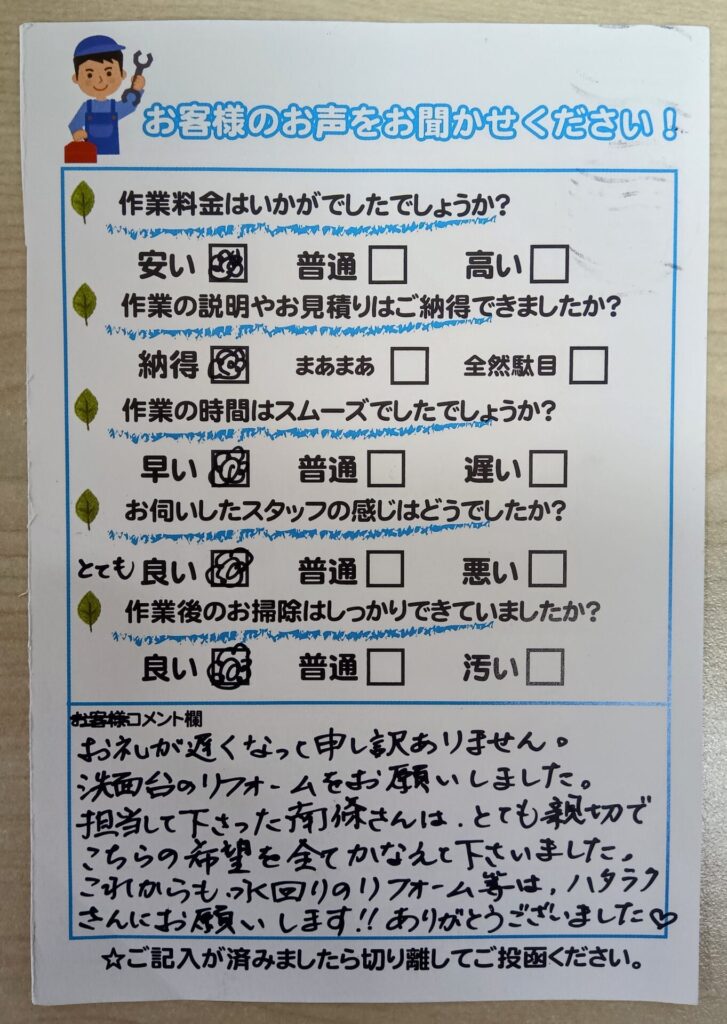 お客様のお声をお聞かせください！
作業料金はいかがでしたでしょうか？
安い 普通 高い
作業の説明やお見積りはご納得できましたか？
納得 まあまあ 全然駄目
作業の時間はスムーズでしたでしょうか？
早い 普通 遅い
お伺いしたスタッフの感じはどうでしたか？
とても 良い 普通 悪い
作業後のお掃除はしっかりできていましたか？
良い 普通 汚い
お客様コメント欄
お礼が遅くなって申し訳ありません。
洗面台のリフォームをお願いしました。
担当して下さった南條さんは、とても親切で
こちらの希望を全てかなえて下さいました。
これからも水回りのリフォーム等は、ハタラク
さんにお願いします!! ありがとうございました♡
☆ご記入が済みましたら切り離してご投函ください。